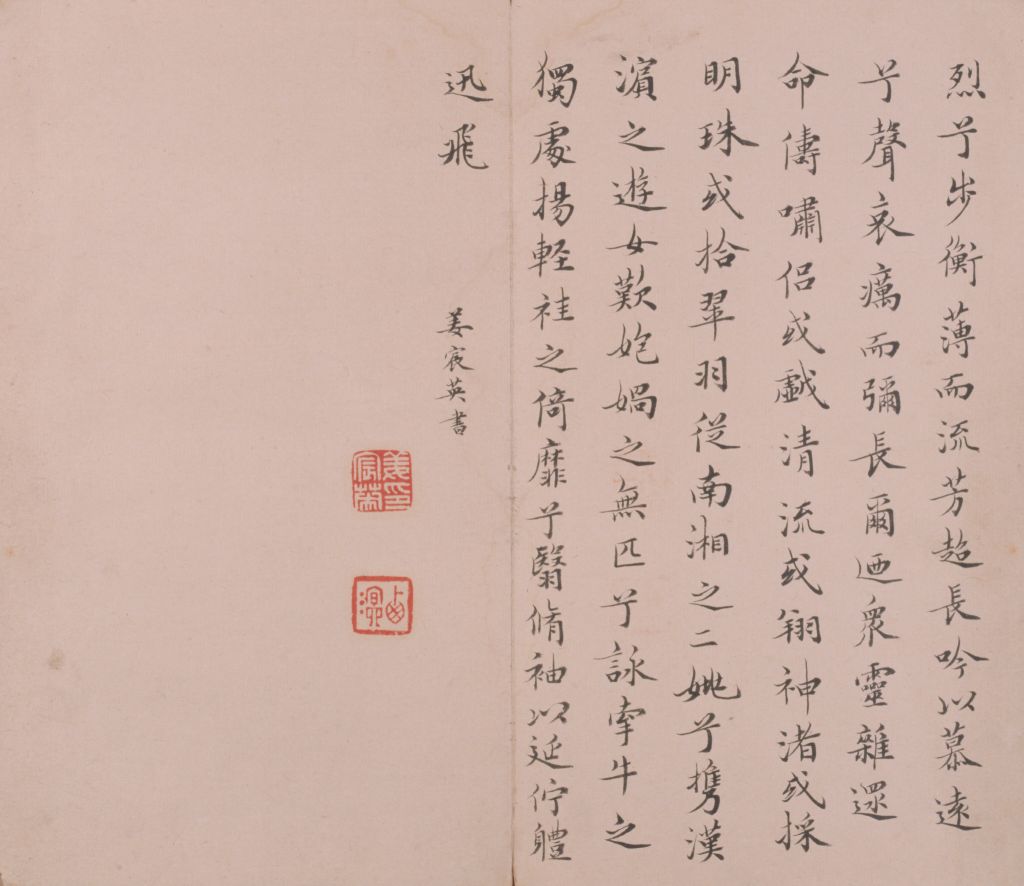 烈兮步衡薄而流芳超長吟以慕遠
兮聲哀癘而彌長爾迺衆靈雜遝
命儔嘯侶或戱清流或翔神渚或採
明珠或拾翠羽從南湘之二姚兮攜漢
濱之遊女歎㚿媧之無匹兮詠牽牛之
獨處揚軽袿之倚靡兮翳脩袖以延佇體
迅飛
姜宸英書
姜印宸英
西溟